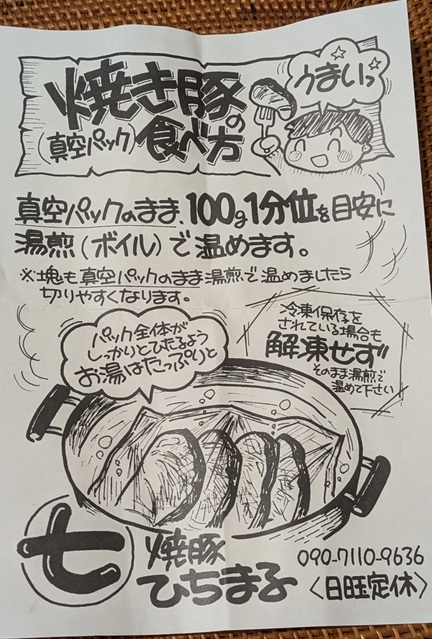 焼き豚の
(真空パック)食べ方
うまいっ
真空パックのまま、100g1分位を目安に
湯煎(ボイル)で温めます。
※塊も真空パックのまま湯煎で温めましたら
切りやすくなります。
冷凍保存を
されている場合も
解凍せず
そのまま湯煎で
温めて下さい
パック全体が
しっかりとひたるよう
お湯はたっぷりと
七
焼豚
ひちまる
090-7110-9636
〈日曜定休〉